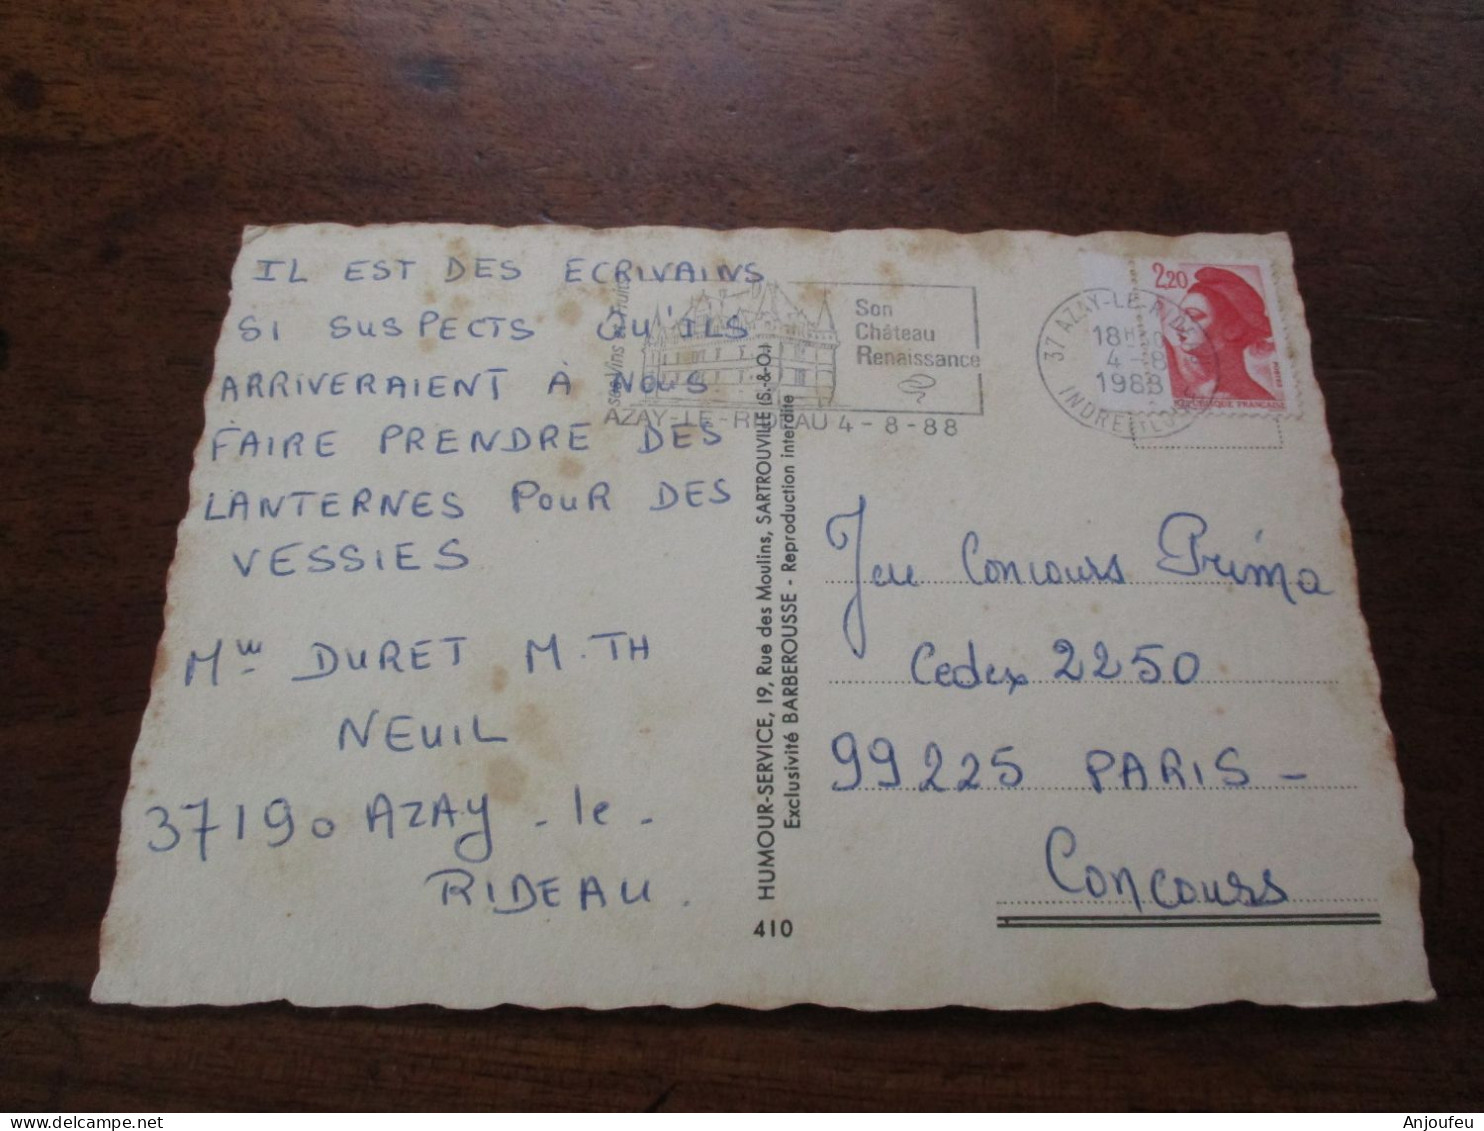 IL EST DES ECRIVAINS
SI SUSPECTS QU'ILS
ARRIVERAIENT À NOUS
FAIRE PRENDRE DES
LANTERNES POUR DES
VESSIES
DURET M.TH
NEUIL
37190 AZAY-le-
RIDEAU.
Son
Château
Renaissance
AZAY-LE-RIDEAU 4-8-88
37 AZAY-LE-RIDEAU
4-8
1988
2,20
HUMOUR-SERVICE, 19, Rue des Moulins, SARTROUVILLE (S.-&-O.)
Exclusivité BARBEROUSSE - Reproduction interdite
410
Jeu Concours Prima
Cedex 2250
99225 PARIS -
Concours
delcampe.net
Anjoufeu